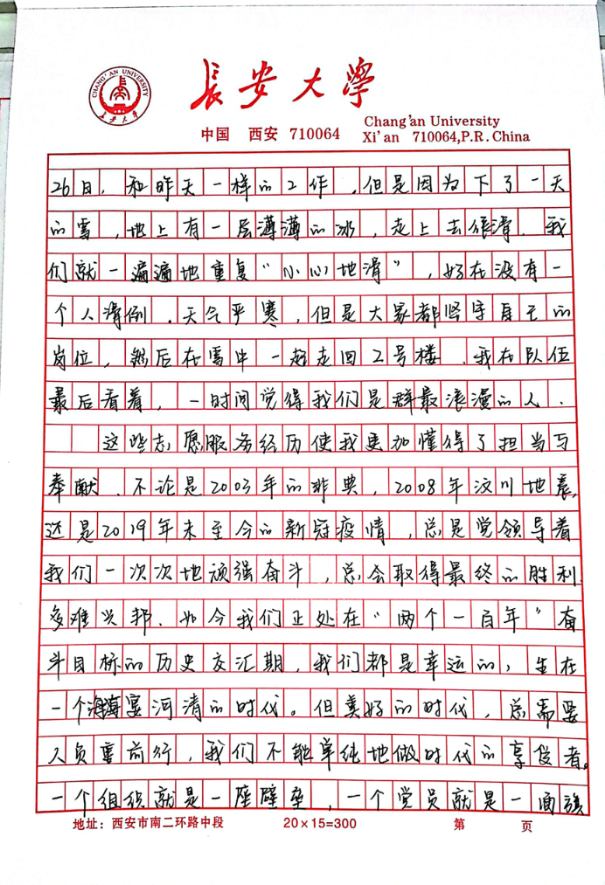 CHANG'AN UNIVERSITY
长安大学
长安大学
中国 西安 710064
Chang'an University
Xi'an 710064,P.R.China
26日，和昨天一样的工作，但是因为下了一天
的雪，地上有一层薄薄的冰，走上去很滑，我
们就一遍遍地重复“小心地滑”，好在没有一
个人滑倒．天气严寒，但是大家都坚守自己的
岗位，然后在雪中一起走回2号楼．我在队伍
最后看着，一时间觉得我们是群最浪漫的人．
这些志愿服务经历使我更加懂得了担当与
奉献．不论是2003年的非典，2008年汶川地震，
还是2019年末至今的新冠疫情，总是党领导着
我们一次次地顽强奋斗，总会取得最终的胜利．
多难兴邦．如今我们正处在“两个一百年”奋
斗目标的历史交汇期，我们都是幸运的，生在
一个海晏河清的时代。但美好的时代，总需要
人负重前行，我们不能单纯地做时代的享受者。
一个组织就是一座壁垒，一个党员就是一面旗
地址：西安市南二环路中段 20×15=300 第 页